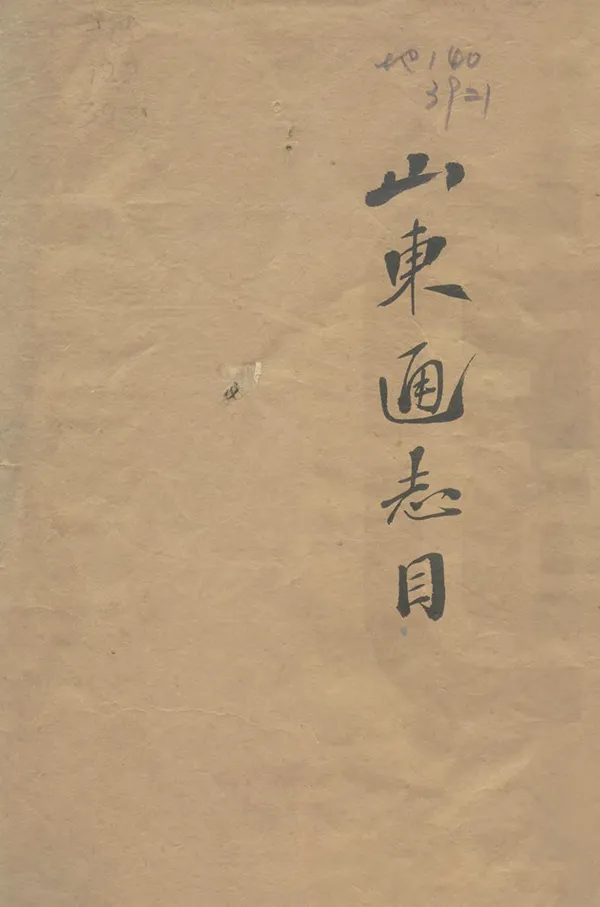 地140
3921
山東通志目